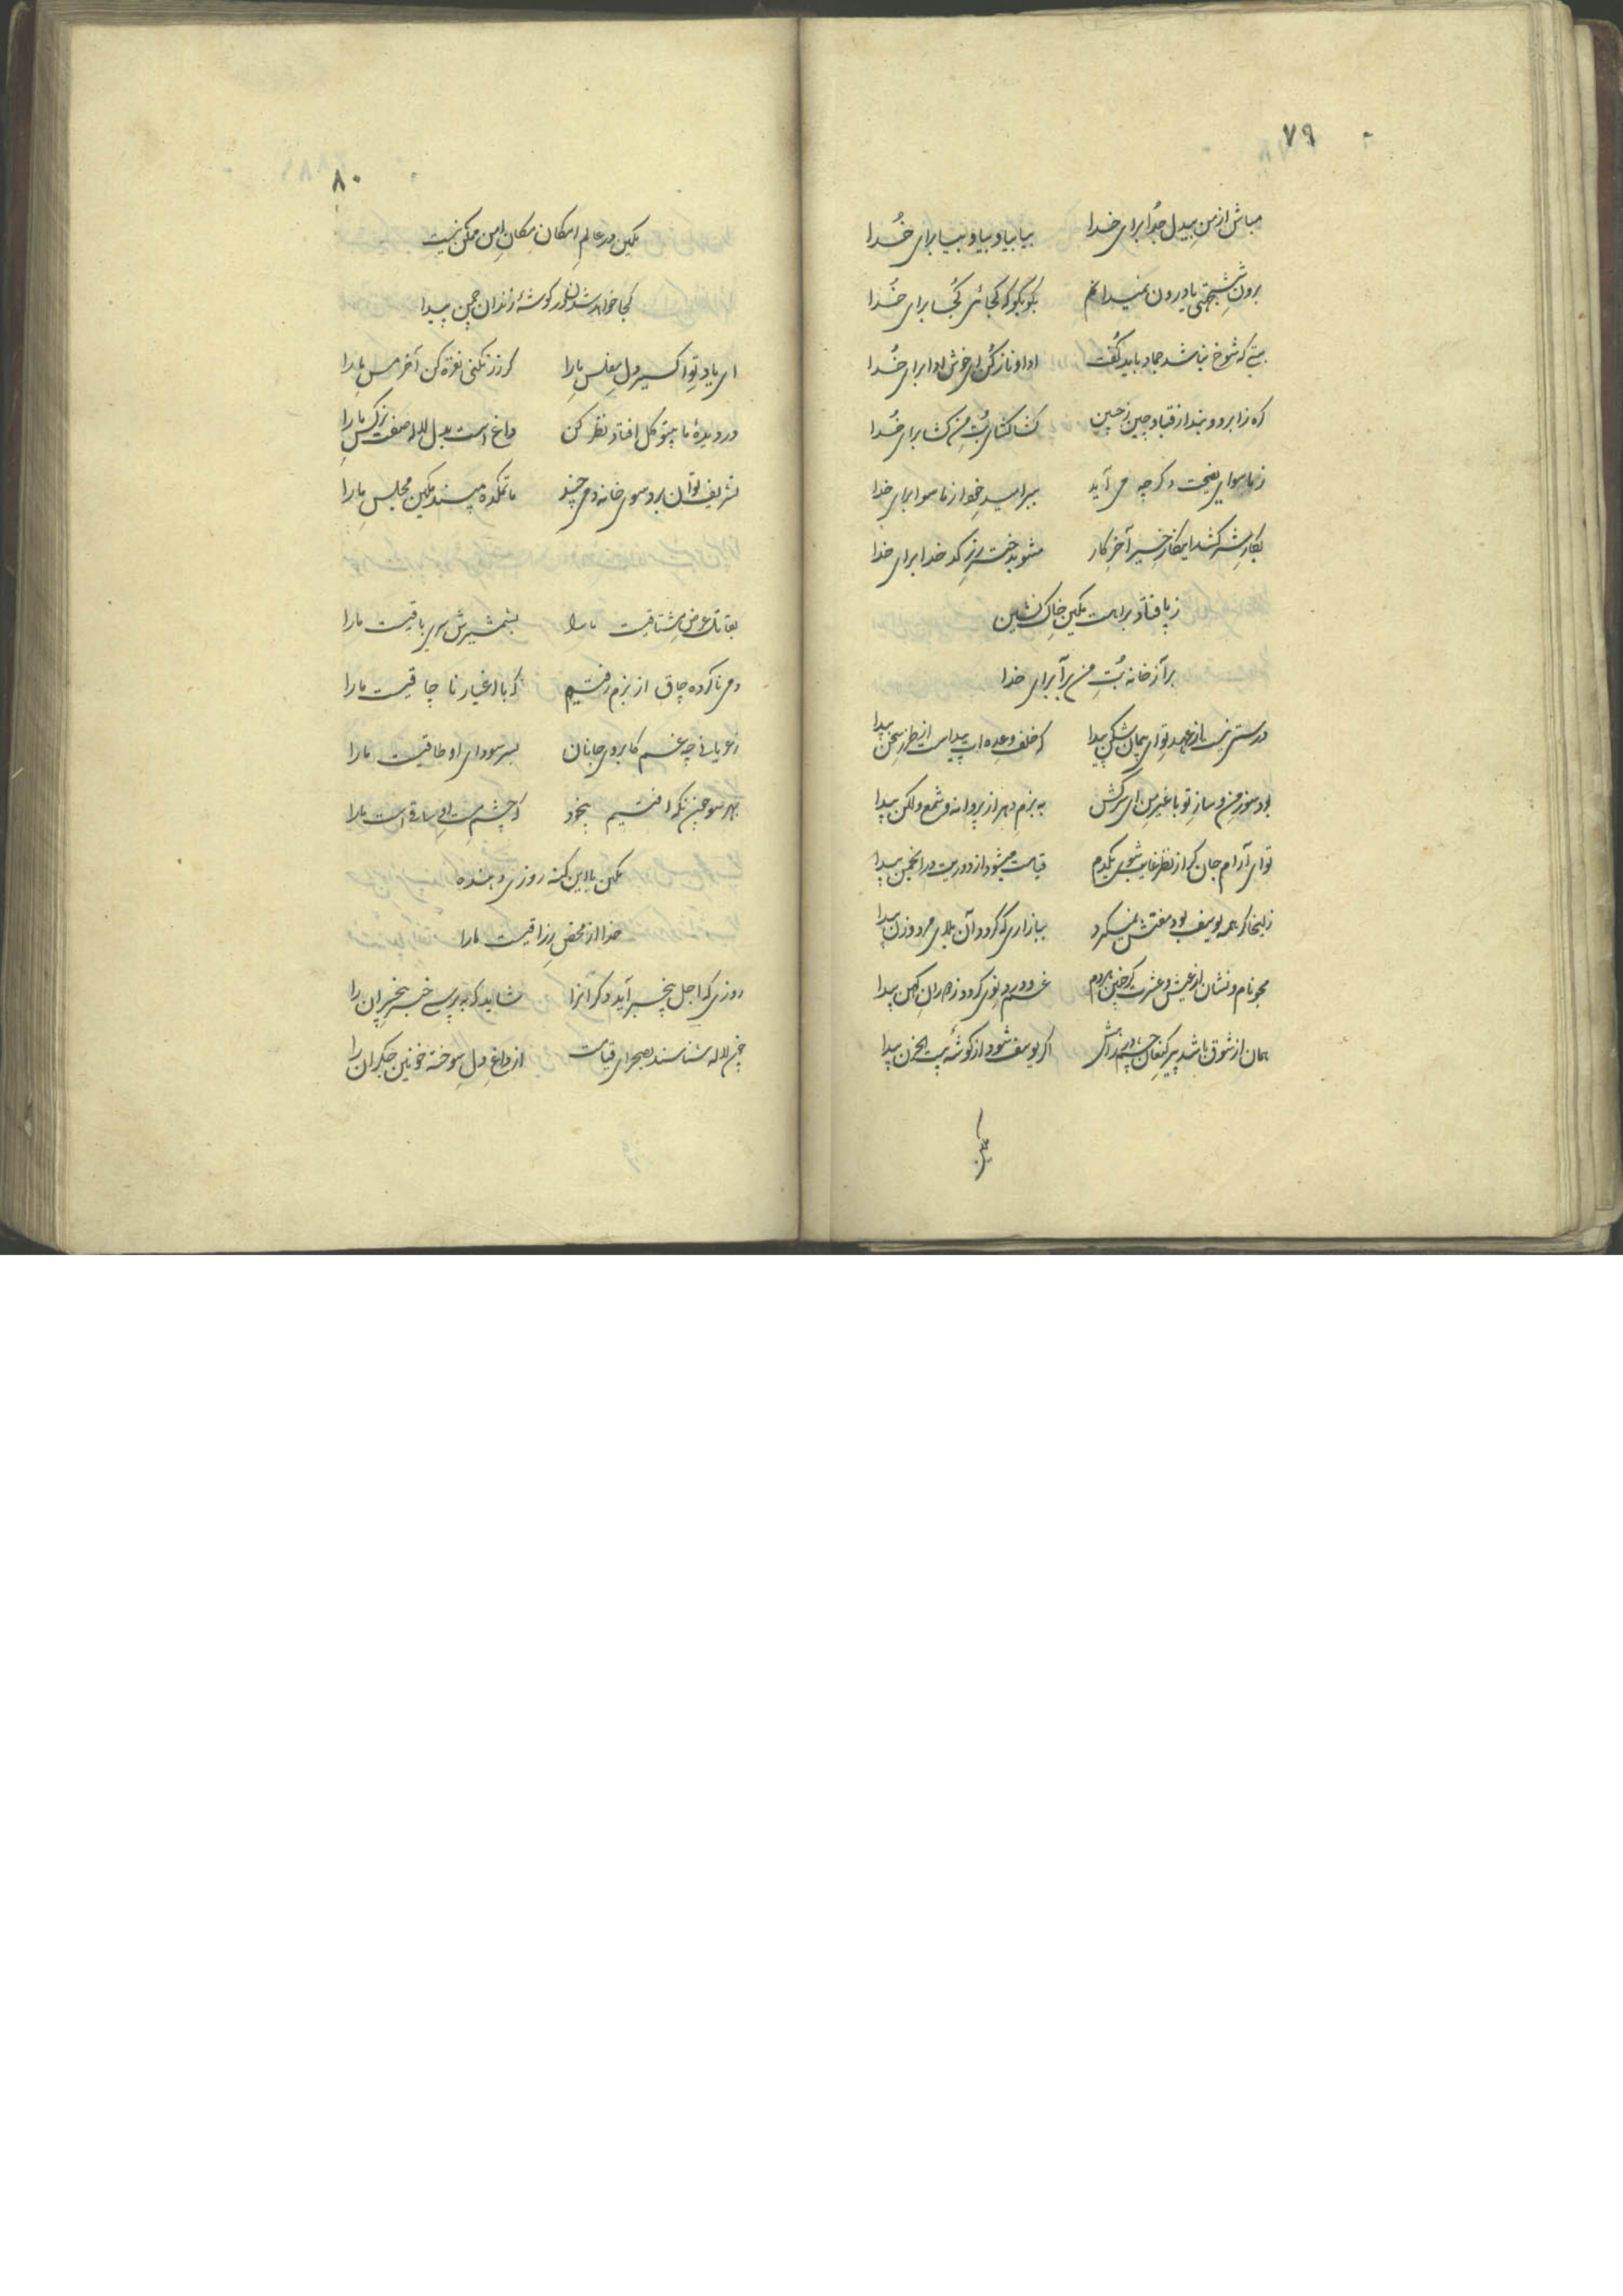 ۷۹
مباش از من بیدل جدا برای خدا بیا بیا و بیا و بیا برای خدا
برون شش جهتی یا درون نمیدانم بگو بگو که کجائی کجا برای خدا
بتی که شوخ نباشد جماد باید گفت ادا و ناز کن ای خوش ادا برای خدا
گره ز ابرو و بند از قبا و چین ز جبین کشا کشای بت من کشا برای خدا
ز ماسوای نصیحت دگر چه می آید ببر امید خود از ماسوا برای خدا
بکار شر کشد اینکار خیر آخر کار مشو بدخت رز کدخدا برای خدا
ز پا فتاد براهت مکین خاک نشین
برآ ز خانه بت من برآ برای خدا
درستی نیست از عهد تو ای پیمان شکن پیدا که خلف وعده ات پیداست از طرز سخن پیدا
بود سوز من و ساز تو با غیر من ای سرکش به بزم دهر از پروانه و شمع و لکن پیدا
تو ای آرام جان گر از نظر غایب شوی یکدم قیامت میشود از دوریت در انجمن پیدا
زلیخا گر همه یوسف بود مفتش نمیگیرد ببازاری که گردد آن بلای مرد و زن پیدا
مجو نام و نشان از عیش و عشرت غم و درد نوی گردد ز دوران کهن پیدا
همان از شوق باشد پیر کنعان چشم در راهش اگر یوسف شود از گوشه بیت الحزن پیدا
مکین
۸۰
مکین در عالم امکان مکان امن ممکن نیست
کجا خواهد شدن در گوشه زندان چمن پیدا
ای یاد تو اکسیر دل مفلس ما را گر زر نکنی نقره کن آخر مس ما را
در دیده ما بیتو گل افتاد نظر کن داغ است بدل لاله صفت نرگس ما را
تشریف توان برد سوی خانه دمی چند ماتمکده مپسند مکین مجلس ما را
بقاتل عرض مشتاقیست ما را بشمشیرش سری باقیست ما را
دمی ناکرده چاق از بزم رفتیم که با اغیار ناچاقیست ما را
ز عریانی چه غم کابروی جانان بسر سودای او طاقیست ما را
بهر سو چین نگه افتیم بیخود که چشم مست او ساقی است ما را
مکین با این گنه روزی دهنده
خدا از محض رزاقیست ما را
روزی که اجل بیخبر آید دگرانرا شاید که بپرسی خبر بیخبران را
چون لاله شناسند بصحرای قیامت از داغ دل سوخته خونین جگران را